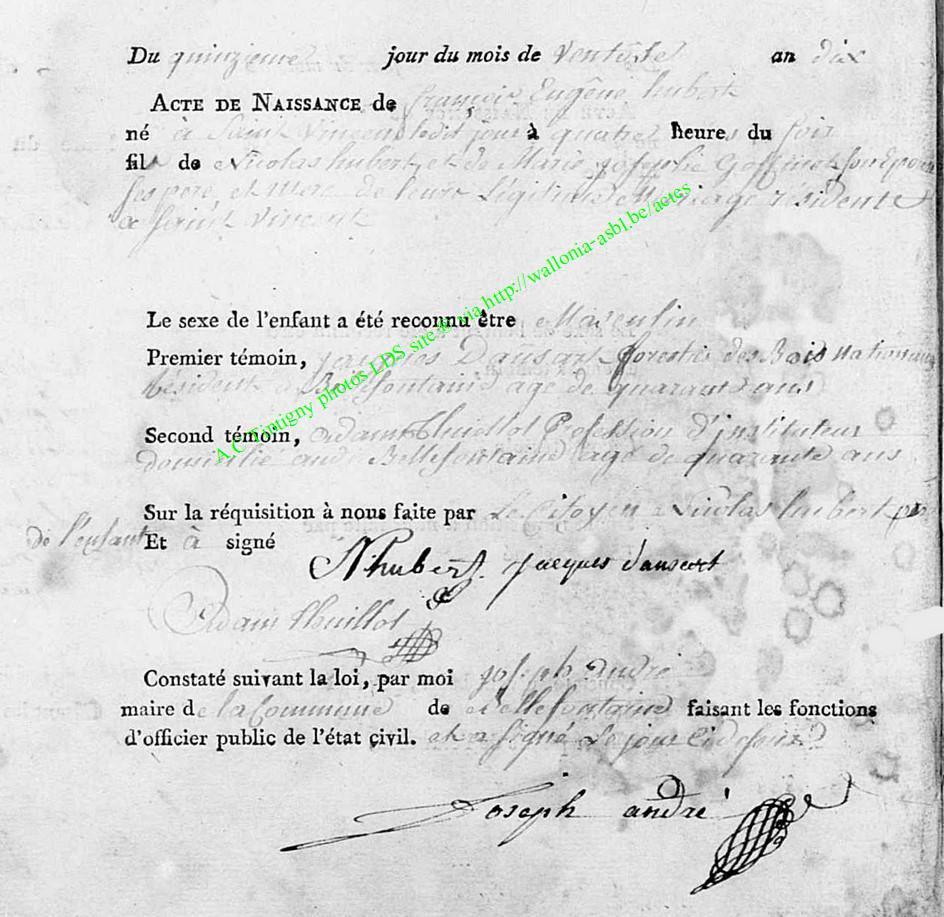 Du quinzieme jour du mois de Ventôse an dix
ACTE DE NAISSANCE de françois Eugêne hubert
né à Saint Vincent ledit jour à quatre heures du soir
fils de Nicolas hubert et de Marie Josephe Goffinet son Epouse
ses pere et mere de leure Légitime Mariage résident
a Saint Vincent
Le sexe de l'enfant a été reconnu être Masculin
Premier témoin, jacques Dansart forestier des Bois Nationaux
Résident a Bellefontaine agé de quarante ans
Second témoin, adam thuillot Profession d'instituteur
domicilié audit Bellefontaine agé de quarante ans
Sur la réquisition à nous faite par Le Citoyen Nicolas hubert per
de l'enfant Et à signé
N hubert jacques dansart
Adam thuillot
Constaté suivant la loi, par moi joseph andré
maire de la Commune de Bellefontaine faisant les fonctions
d'officier public de l'état civil. et a signé Le jour
Joseph andré
A.C Tintigny photos LDS site © via http://wallonia-asbl.be/actes